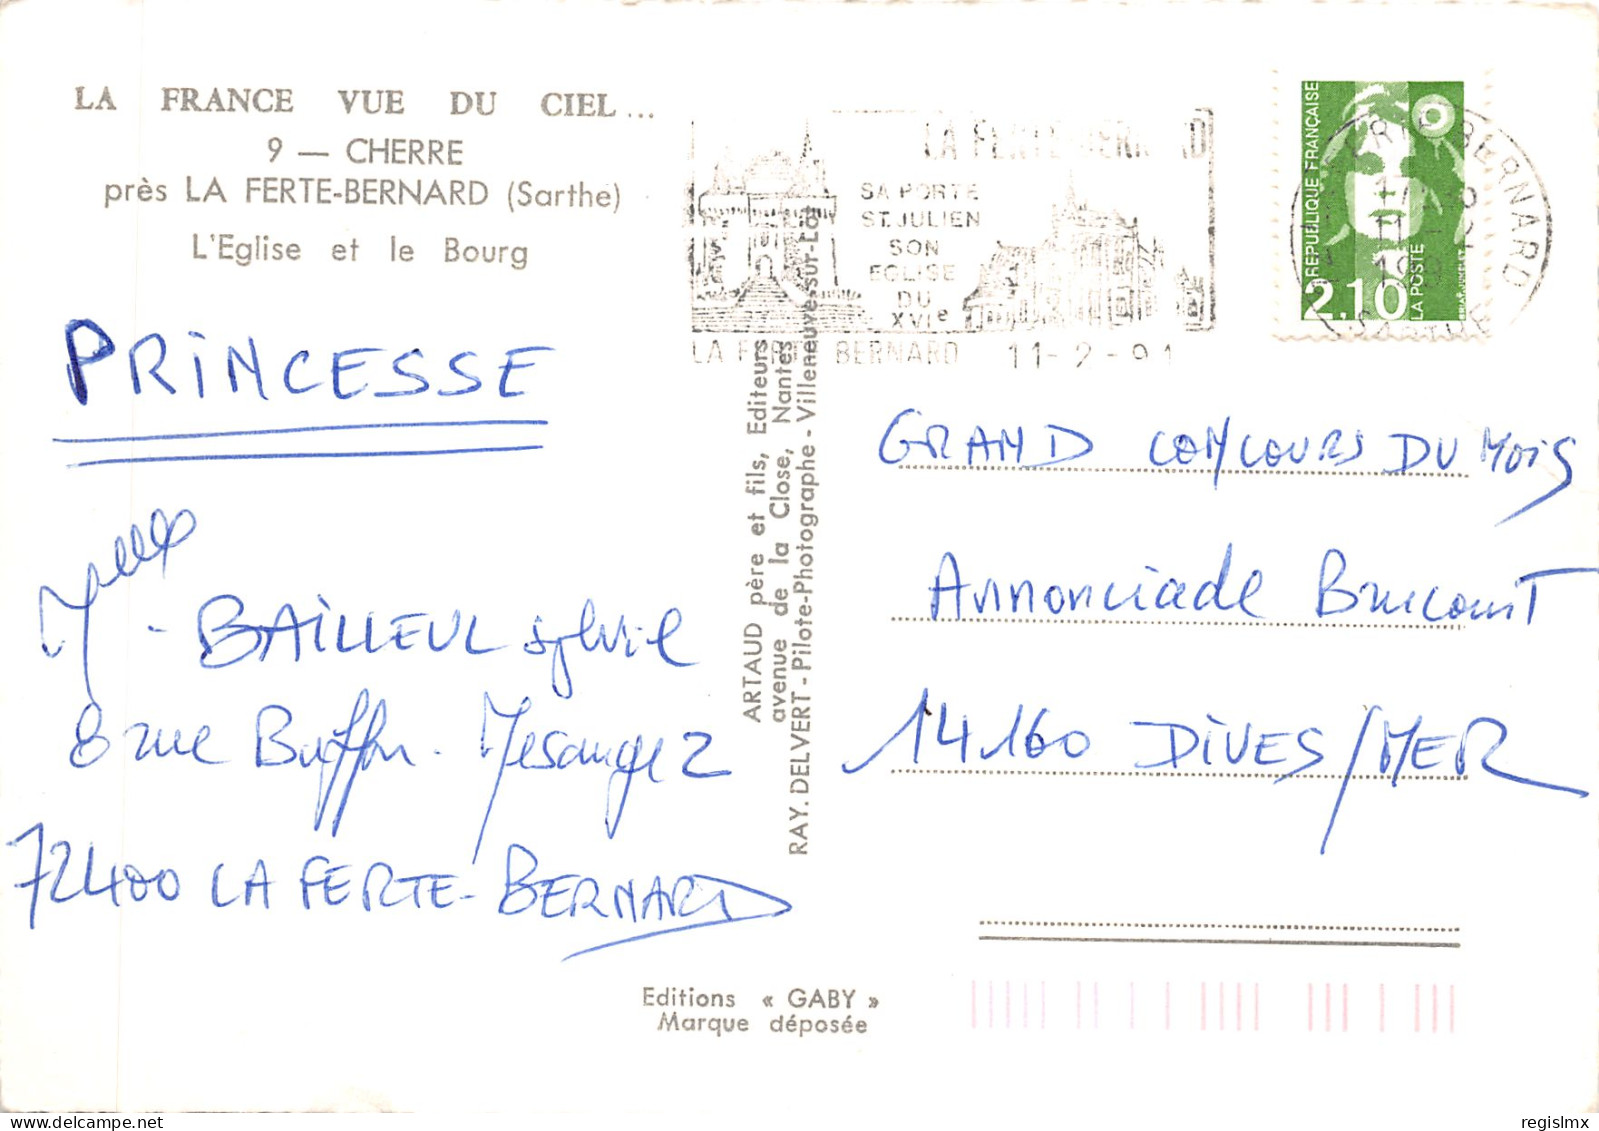 LA FRANCE VUE DU CIEL...
9 — CHERRE
près LA FERTE-BERNARD (Sarthe)
L'Eglise et le Bourg
PRINCESSE
Melle - BAILLEUL sylvie
8 rue Buffon - Mesangez
72400 LA FERTE-BERNARD
ARTAUD père et fils, Editeurs
avenue de la Close, Nantes
RAY. DELVERT - Pilote-Photographe - Villeneuve-sur-Lot
LA FERTE BERNARD
SA PORTE
ST.JULIEN
SON
EGLISE
DU
XVIe
LA FERTE BERNARD 11-2-91
REPUBLIQUE FRANÇAISE
2,10
LA POSTE
LA FERTE-BERNARD
SARTHE
GRAND CONCOURS DU MOIS
Annonciade Brucourt
14160 DIVES/MER
Editions « GABY »
Marque déposée
regislmx
delcampe.net